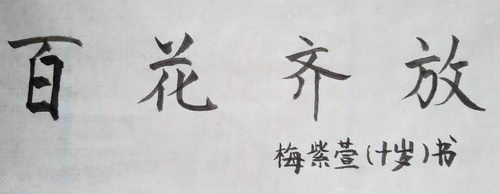 百花齐放
梅紫萱(十岁)书